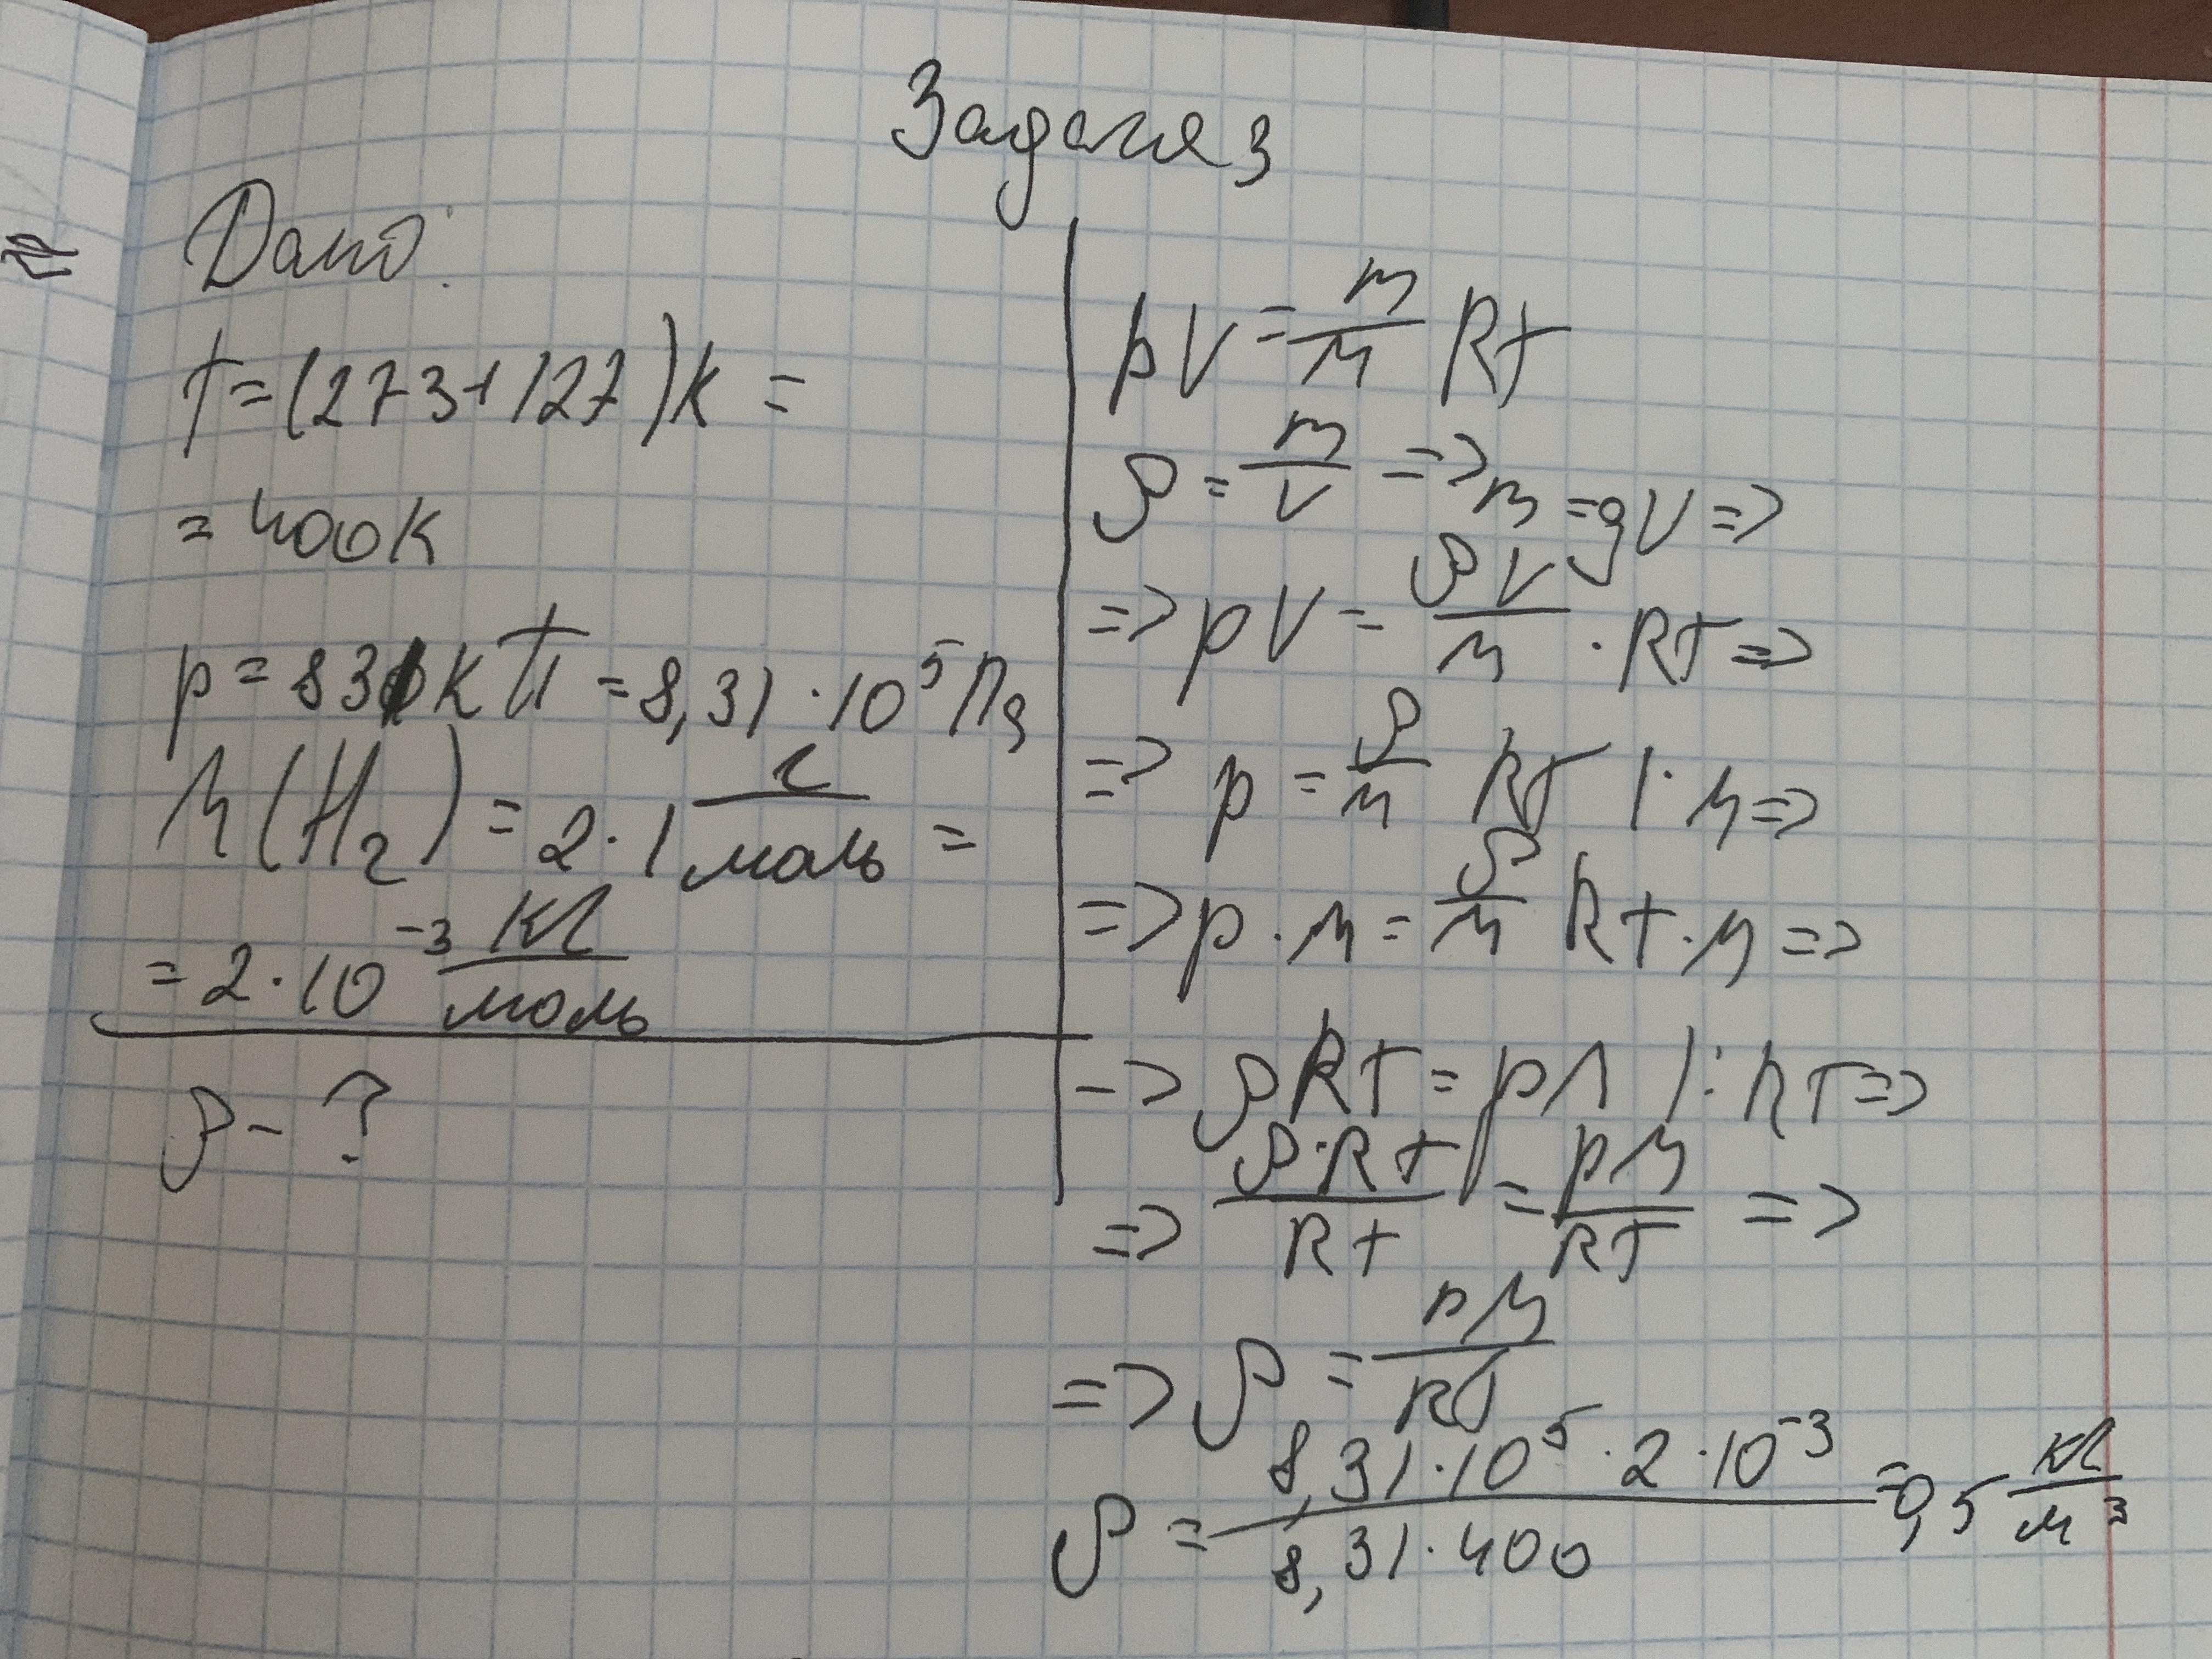 Задача 3
Дано:
T=(273+127)K =
= 400K
p = 831кП = 8,31 · 10⁵ Па
M(H₂) = 2 · 1 г/моль =
= 2 · 10⁻³ кг/моль
ρ - ?
pV = m/M RT
ρ = m/V => m = ρV =>
=> pV = ρV/M · RT =>
=> p = ρ/M RT | · M =>
=> p · M = ρ/M RT · M =>
-> ρRT = pM | : RT =>
=> ρ·RT/RT = pM/RT =>
=> ρ = pM/RT
ρ = 8,31·10⁵·2·10⁻³/8,31·400 = 0,5 кг/м³